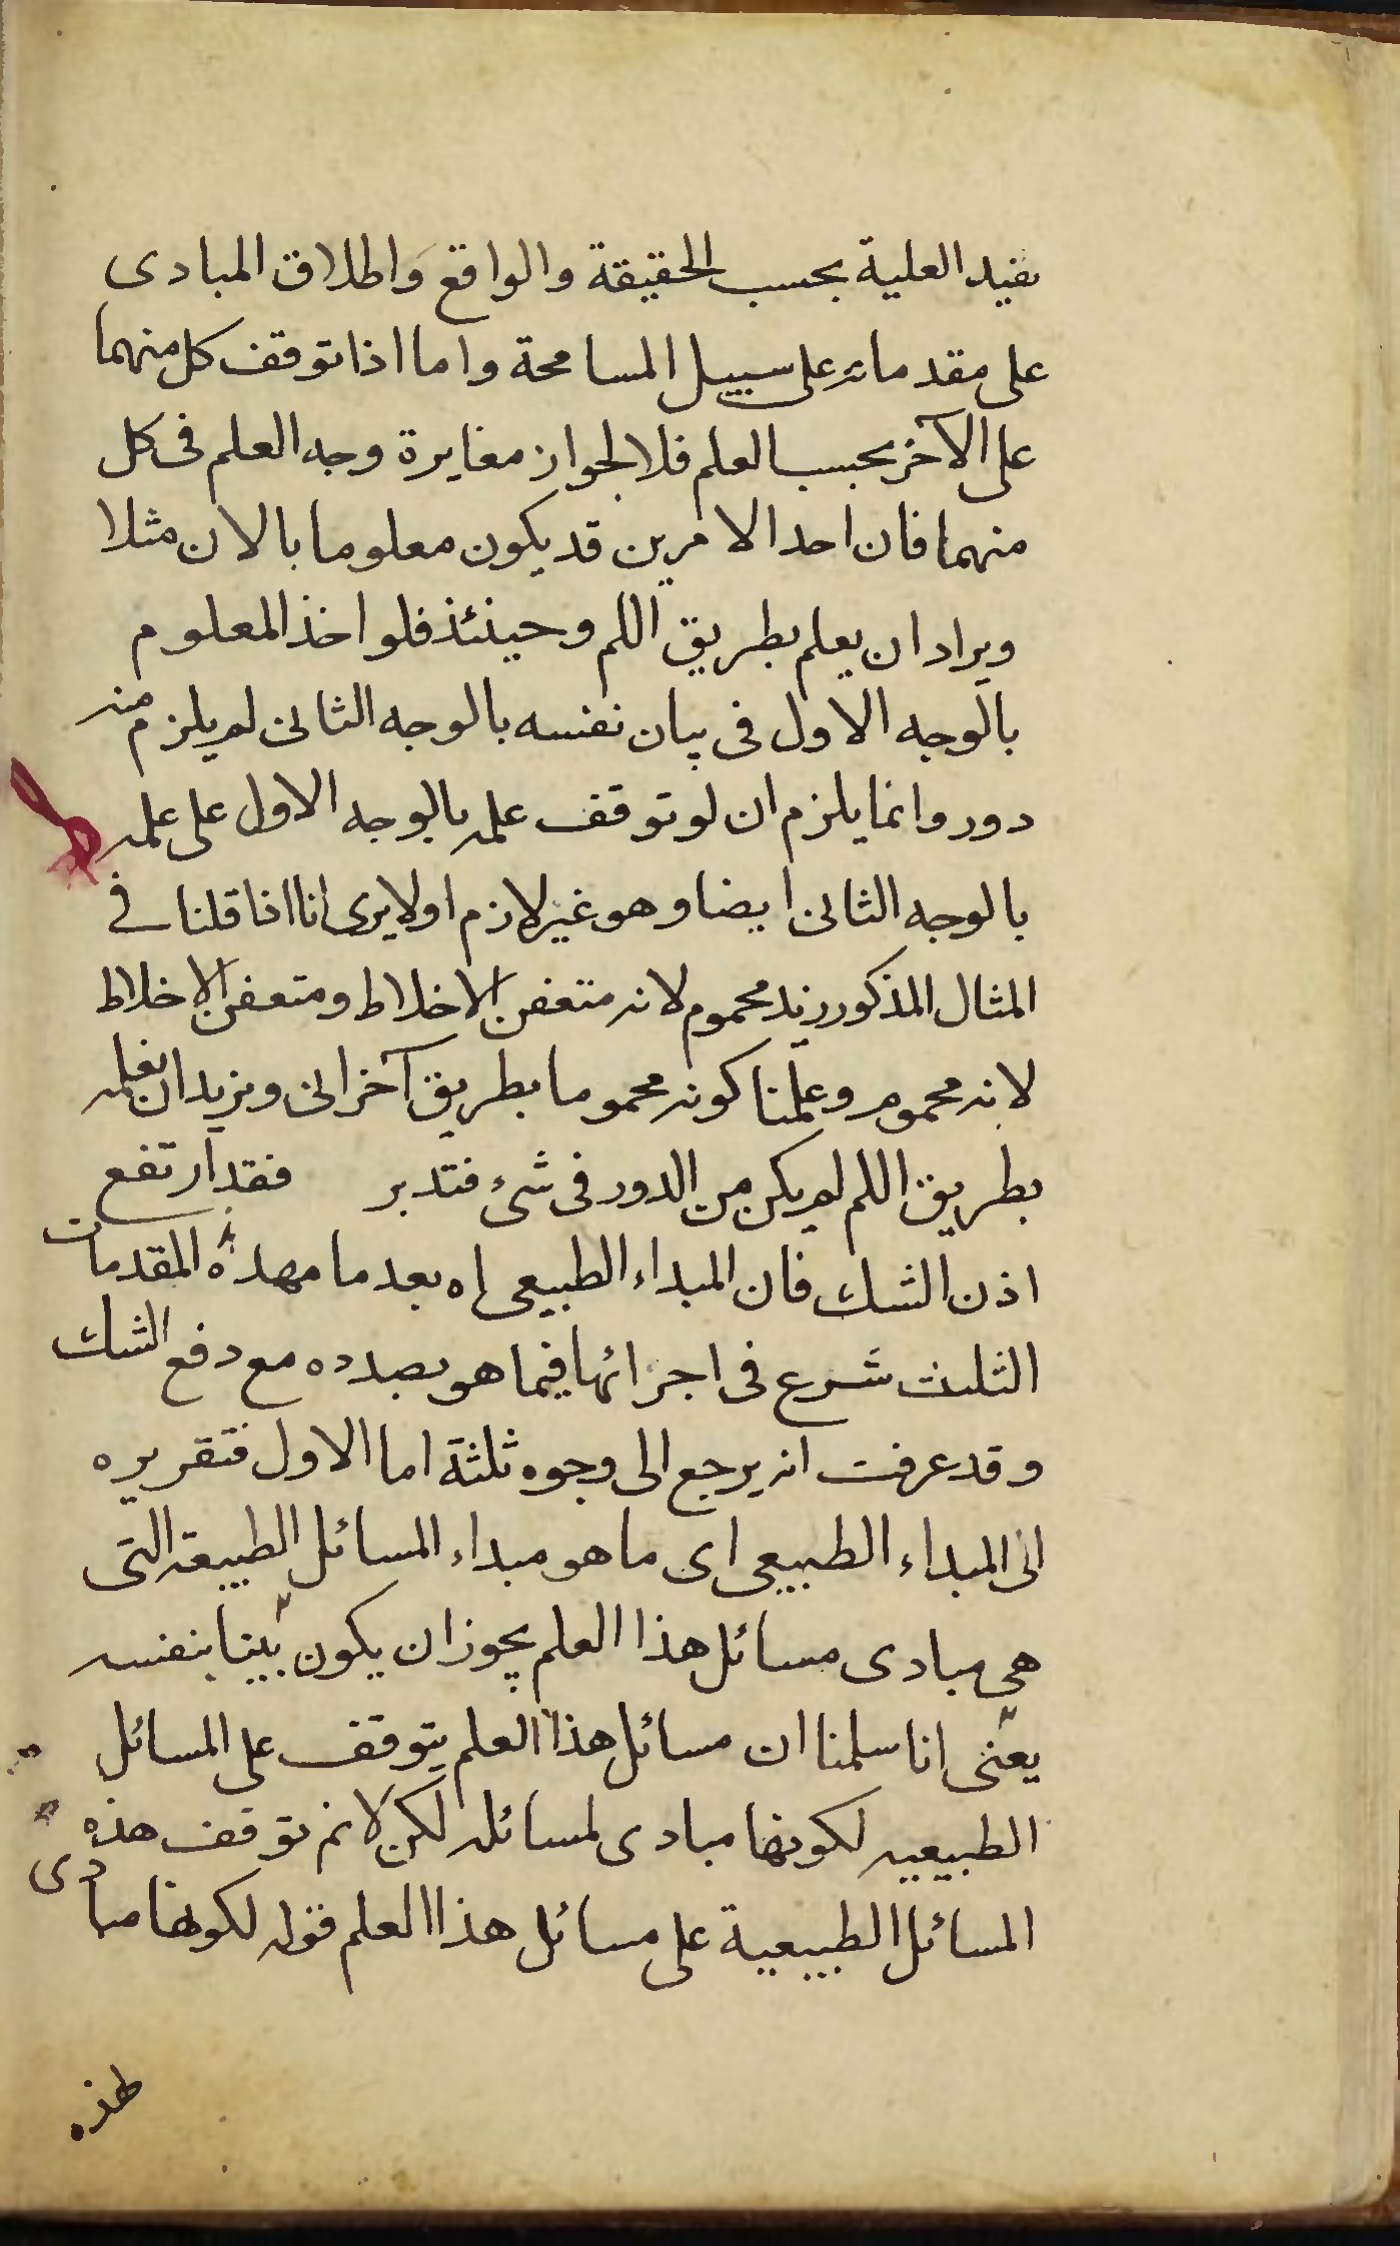 يفيد العلية بحسب الحقيقة والواقع واطلاق المبادى
على مقدماته على سبيل المسامحة واما اذا توقف كل منهما
على الآخر بحسب العلم فلا لجواز مغايرة وجه العلم فى كل
منهما فان احد الامرين قد يكون معلوما بالان مثلا
ويراد ان يعلم بطريق اللم وحينئذ فلو اخذ المعلوم
بالوجه الاول فى بيان نفسه بالوجه الثانى لم يلزم منه
دور وانما يلزم ان لو توقف علمه بالوجه الاول على علمه
بالوجه الثانى ايضا وهو غير لازم اولا يرى انا اذا قلنا فى
المثال المذكور زيد محموم لانه متعفن الاخلاط ومتعفن الاخلاط
لانه محموم وعلمنا كونه محموما بطريق آخر انى ونريد ان نعلمه
بطريق اللم لم يكن من الدور فى شئ فتدبر فقد ارتفع
اذن الشك فان المبداء الطبيعى اه بعد ما مهد هذه المقدمات
الثلث شرع فى اجرائها فيما هو بصدده مع دفع الشك
وقد عرفت انه يرجع الى وجوه ثلثة اما الاول فتقريره
ان المبداء الطبيعى اى ما هو مبداء المسائل الطبيعة التى
هى مبادى مسائل هذا العلم يجوز ان يكون بينا بنفسه
يعنى انا سلمنا ان مسائل هذا العلم يتوقف على المسائل
الطبيعيه لكونها مبادى لمسائله لكن لانم توقف هذه
المسائل الطبيعية على مسائل هذا العلم قوله لكونها مبادى
لهذه